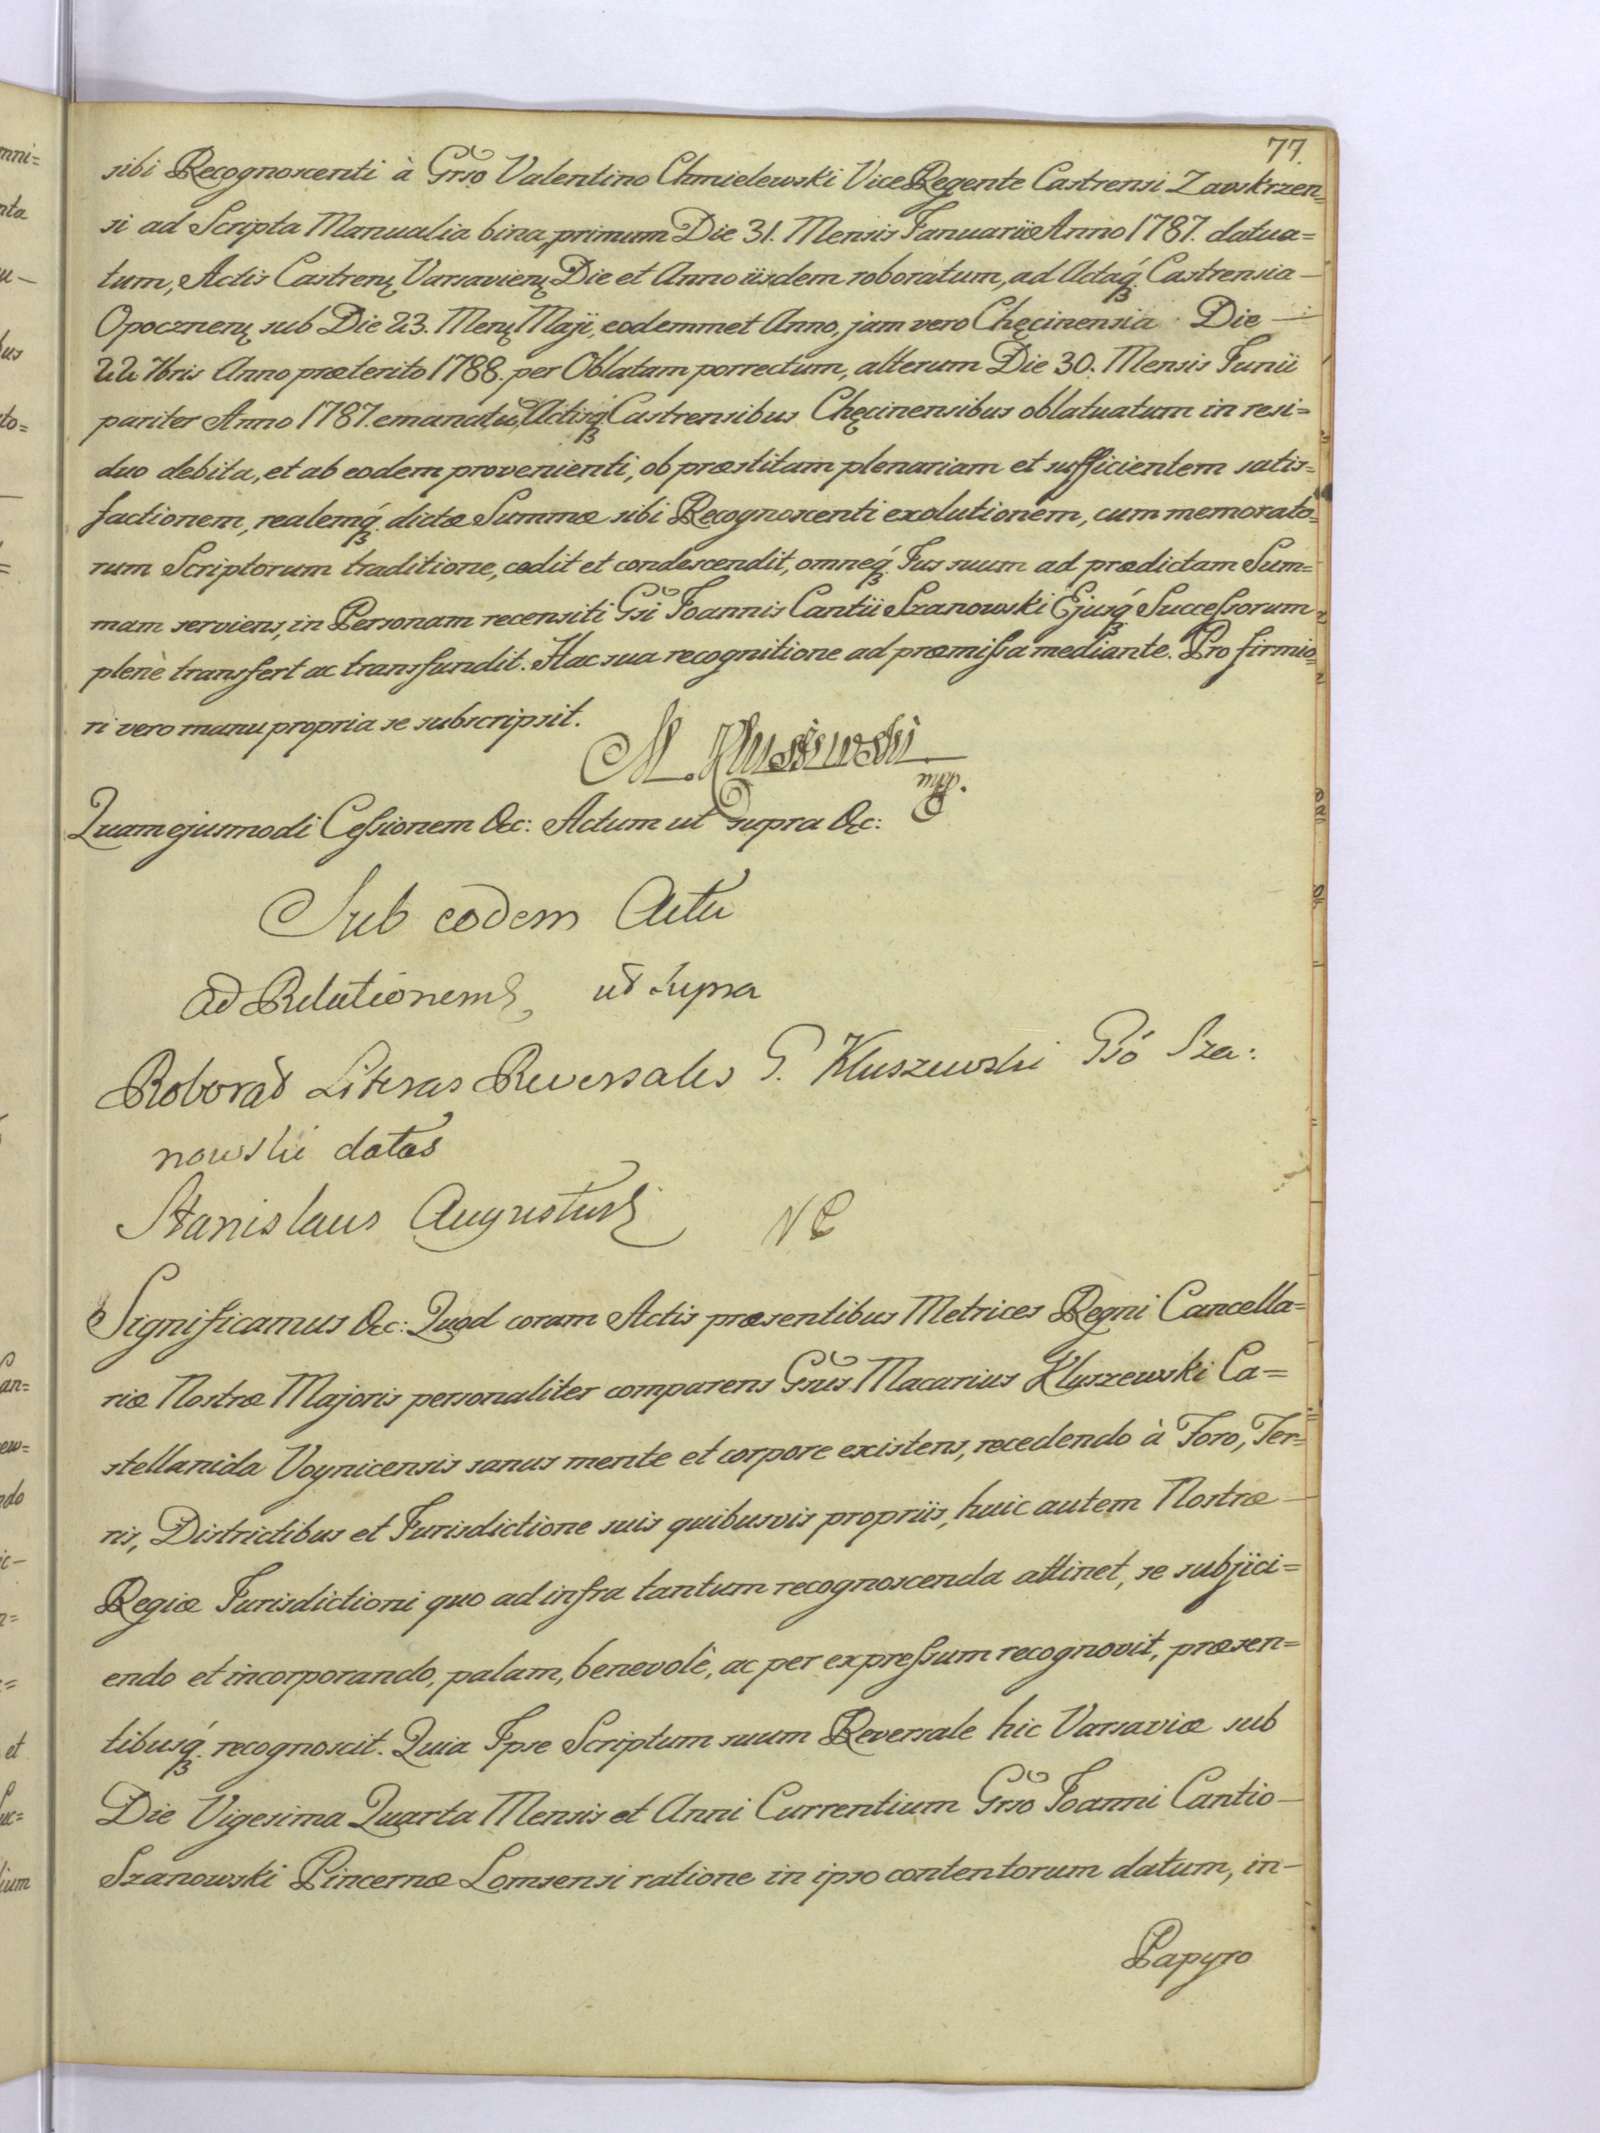 77.
sibi Recognoscenti à Grso Valentino Chmielewski Vice Regente Castrensi Zawskrzen=
si ad Scripta Manualia bina, primum Die 31. Mensis Januarii Anno 1787. datua=
tum, Actis Castren: Varsavien: Die et Anno iisdem roboratum, ad Actaq́ Castrensia —
Opocznen: sub Die 23. Men: Maji, eodemmet Anno, jam vero Chęcinensia Die —
22 7bris Anno præterito 1788. per Oblatam porrectum, alterum Die 30. Mensis Junii
pariter Anno 1787. emanatū, Actisq́ Castrensibus Chęcinensibus oblatuatum in resi=
duo debita, et ab eodem provenienti, ob præstitam plenariam et sufficientem satis=
factionem, realemq́ dictæ Summæ sibi Recognoscenti exolutionem, cum memorato=
rum Scriptorum traditione, cedit et condescendit, omneq́ Jus suum ad prædictam Sum=
mam serviens, in Personam recensiti Gsi Joannis Cantii Szanowski Ejusq́ Successorum
plenè transfert ac transfundit. Hac sua recognitione ad præmissa mediante. Pro firmio=
ri vero manu propria se subscripsit.
M. Kluszewski
mpp.
Quam ejusmodi Cessionem &c: Actum ut supra &c:
Sub eodem Actu
ad Relationem ut supra
Roborat Literas Reversales G. Kluszewski Gsó Sza:
nowski datas
Stanislaus Augustus NC
Significamus &c: Quod coram Actis præsentibus Metrices Regni Cancella=
riæ Nostræ Majoris personaliter comparens Gsus Macarius Kluszewski Ca=
stellanida Voynicensis sanus mente et corpore existens, recedendo à Foro, Ter=
ris, Districtibus et Jurisdictione suis quibusvis propriis, huic autem Nostræ —
Regiæ Jurisdictioni quo ad infra tantum recognoscenda attinet, se subjici=
endo et incorporando, palam, benevolè, ac per expressum recognovit, præsen=
tibusq́ recognoscit. Quia Ipse Scriptum suum Reversale hic Varsaviæ sub
Die Vigesima Quarta Mensis et Anni Currentium Grso Joanni Cantio —
Szanowski Pincernæ Lomsensi ratione in ipso contentorum datum, in —
Papyro